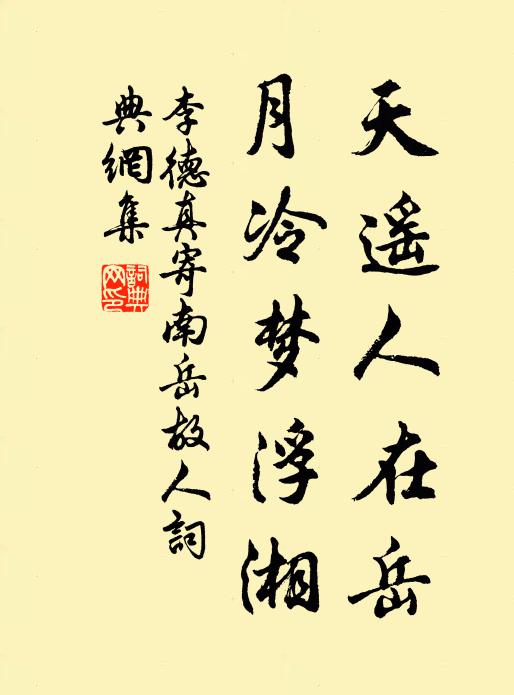 天遥人在岳
月冷梦浮湘
李德真寄南岳故人詞
典網集
詞典
网印